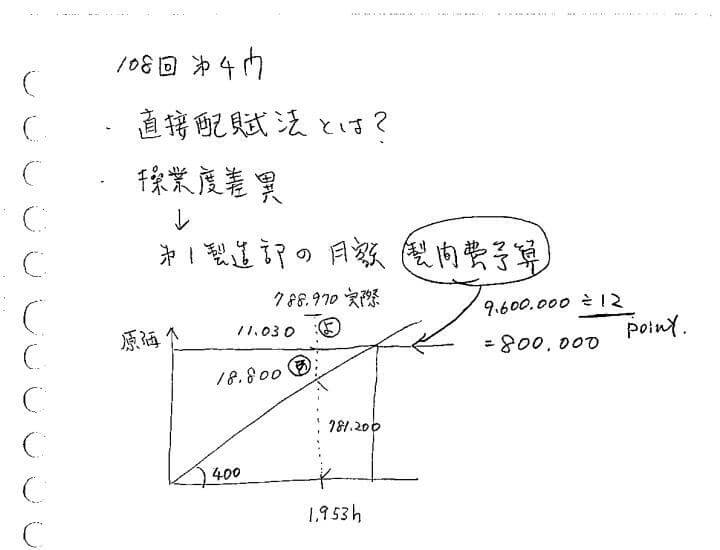 108回 第4問
・直接配賦法とは?
・操業度差異
↓
第1製造部の月額 製間費予算
788.970 実際
9.600.000 ÷12
point.
=800.000
原価
11.030
18.800
781.200
400
1.953h